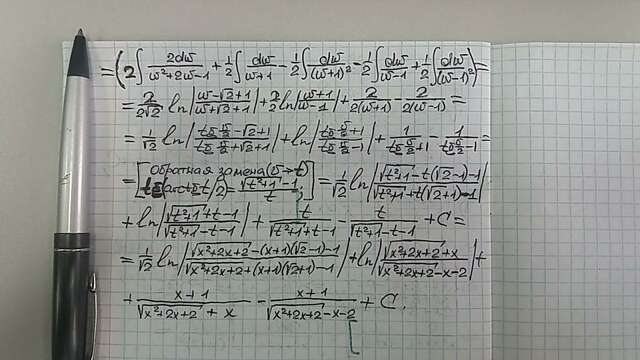 = (2∫ 2dw/(w²+2w-1) + 1/2 ∫ dw/(w+1) - 1/2 ∫ dw/(w+1)² - 1/2 ∫ dw/(w-1) + 1/2 ∫ dw/(w-1)²) =
= 2/(2√2) ln|(w-√2+1)/(w+√2+1)| + 2/2 ln|(w+1)/(w-1)| + 2/(2(w+1)) - 2/(2(w-1)) =
= 1/√2 ln|(tg σ/2 - √2+1)/(tg σ/2 + √2+1)| + ln|(tg σ/2 + 1)/(tg σ/2 - 1)| + 1/(tg σ/2 + 1) - 1/(tg σ/2 - 1) =
= [обратная замена (σ→t) tg(arctg t/2) = (√(t²+1) - 1)/t] = 1/√2 ln|(√(t²+1) - t(√2-1) - 1)/(√(t²+1) + t(√2+1) - 1)|
+ ln|(√(t²+1) + t - 1)/(√(t²+1) - t - 1)| + t/(√(t²+1) + t - 1) - t/(√(t²+1) - t - 1) + C =
= 1/√2 ln|(√(x²+2x+2) - (x+1)(√2-1) - 1)/(√(x²+2x+2) + (x+1)(√2+1) - 1)| + ln|(√(x²+2x+2) + x)/(√(x²+2x+2) - x - 2)| +
+ (x+1)/(√(x²+2x+2) + x) - (x+1)/(√(x²+2x+2) - x - 2) + C.